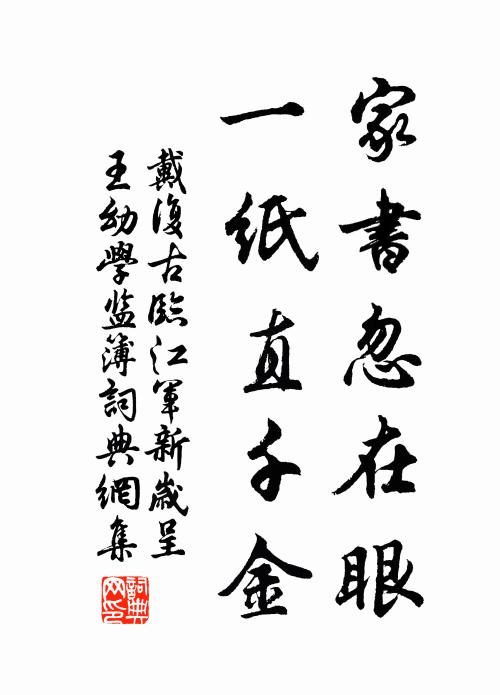 家書忽在眼
一紙直千金
戴復古臨江軍新歲呈
王幼學監簿詞典網集
詞典网印